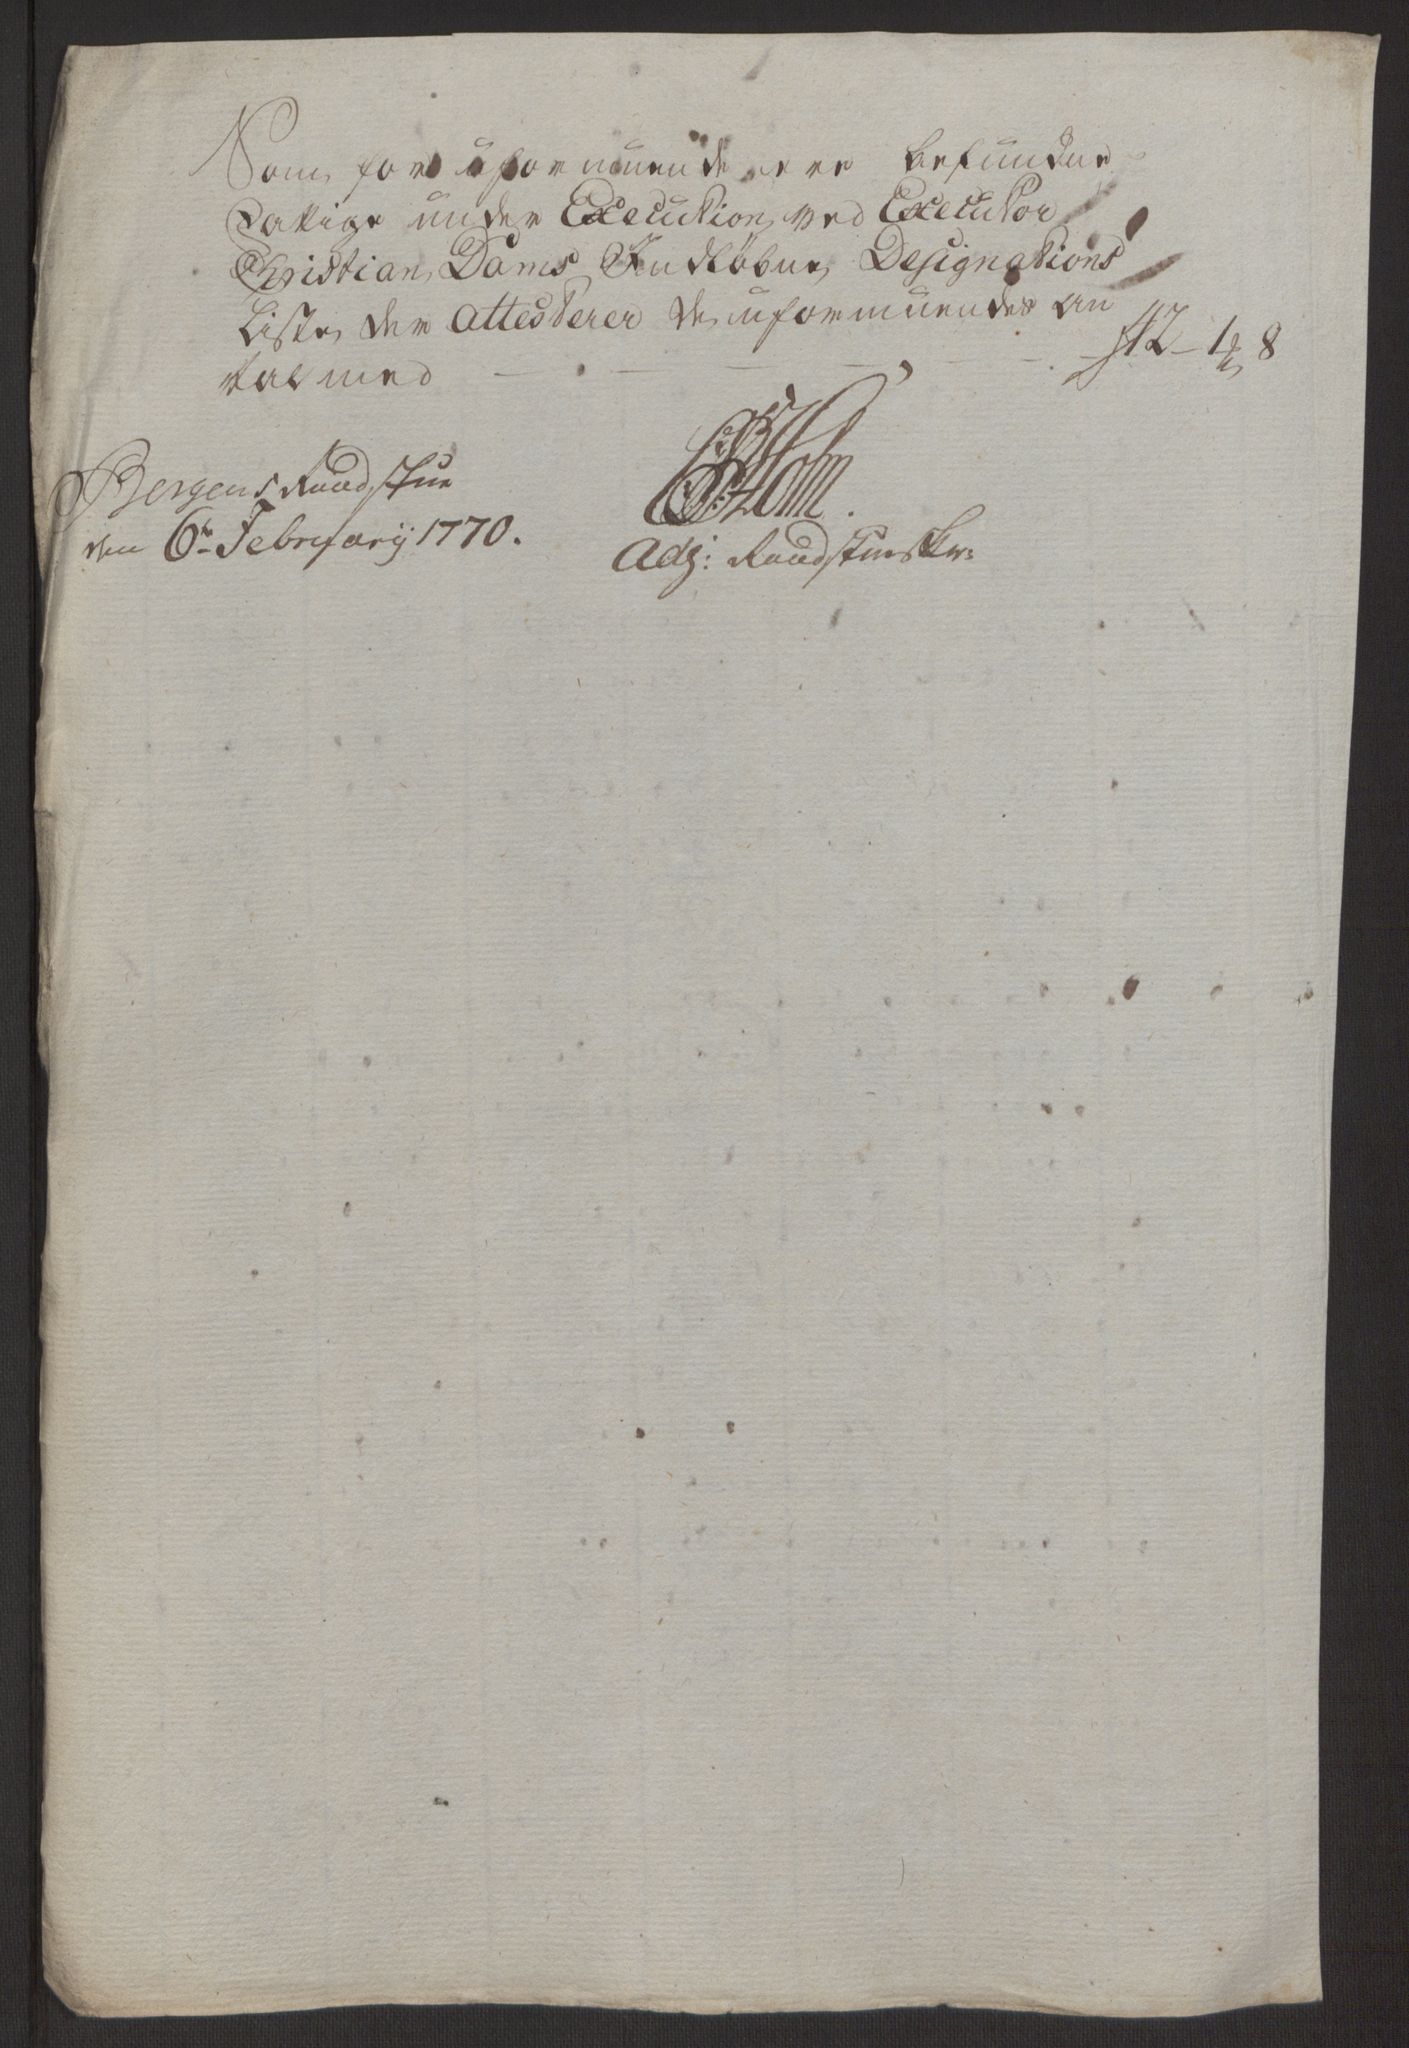 Som for uformuende ere befundne
fattige under Execution, ved Executor
Christian Dams Indkobne Designations
Liste, der Attesterer de uformuendes an
tal med — — — — 12 – 1 ₰ 8
Bergens Raadstue
den 6te February 1770.
Holm.
Adj: Raadstueskr: